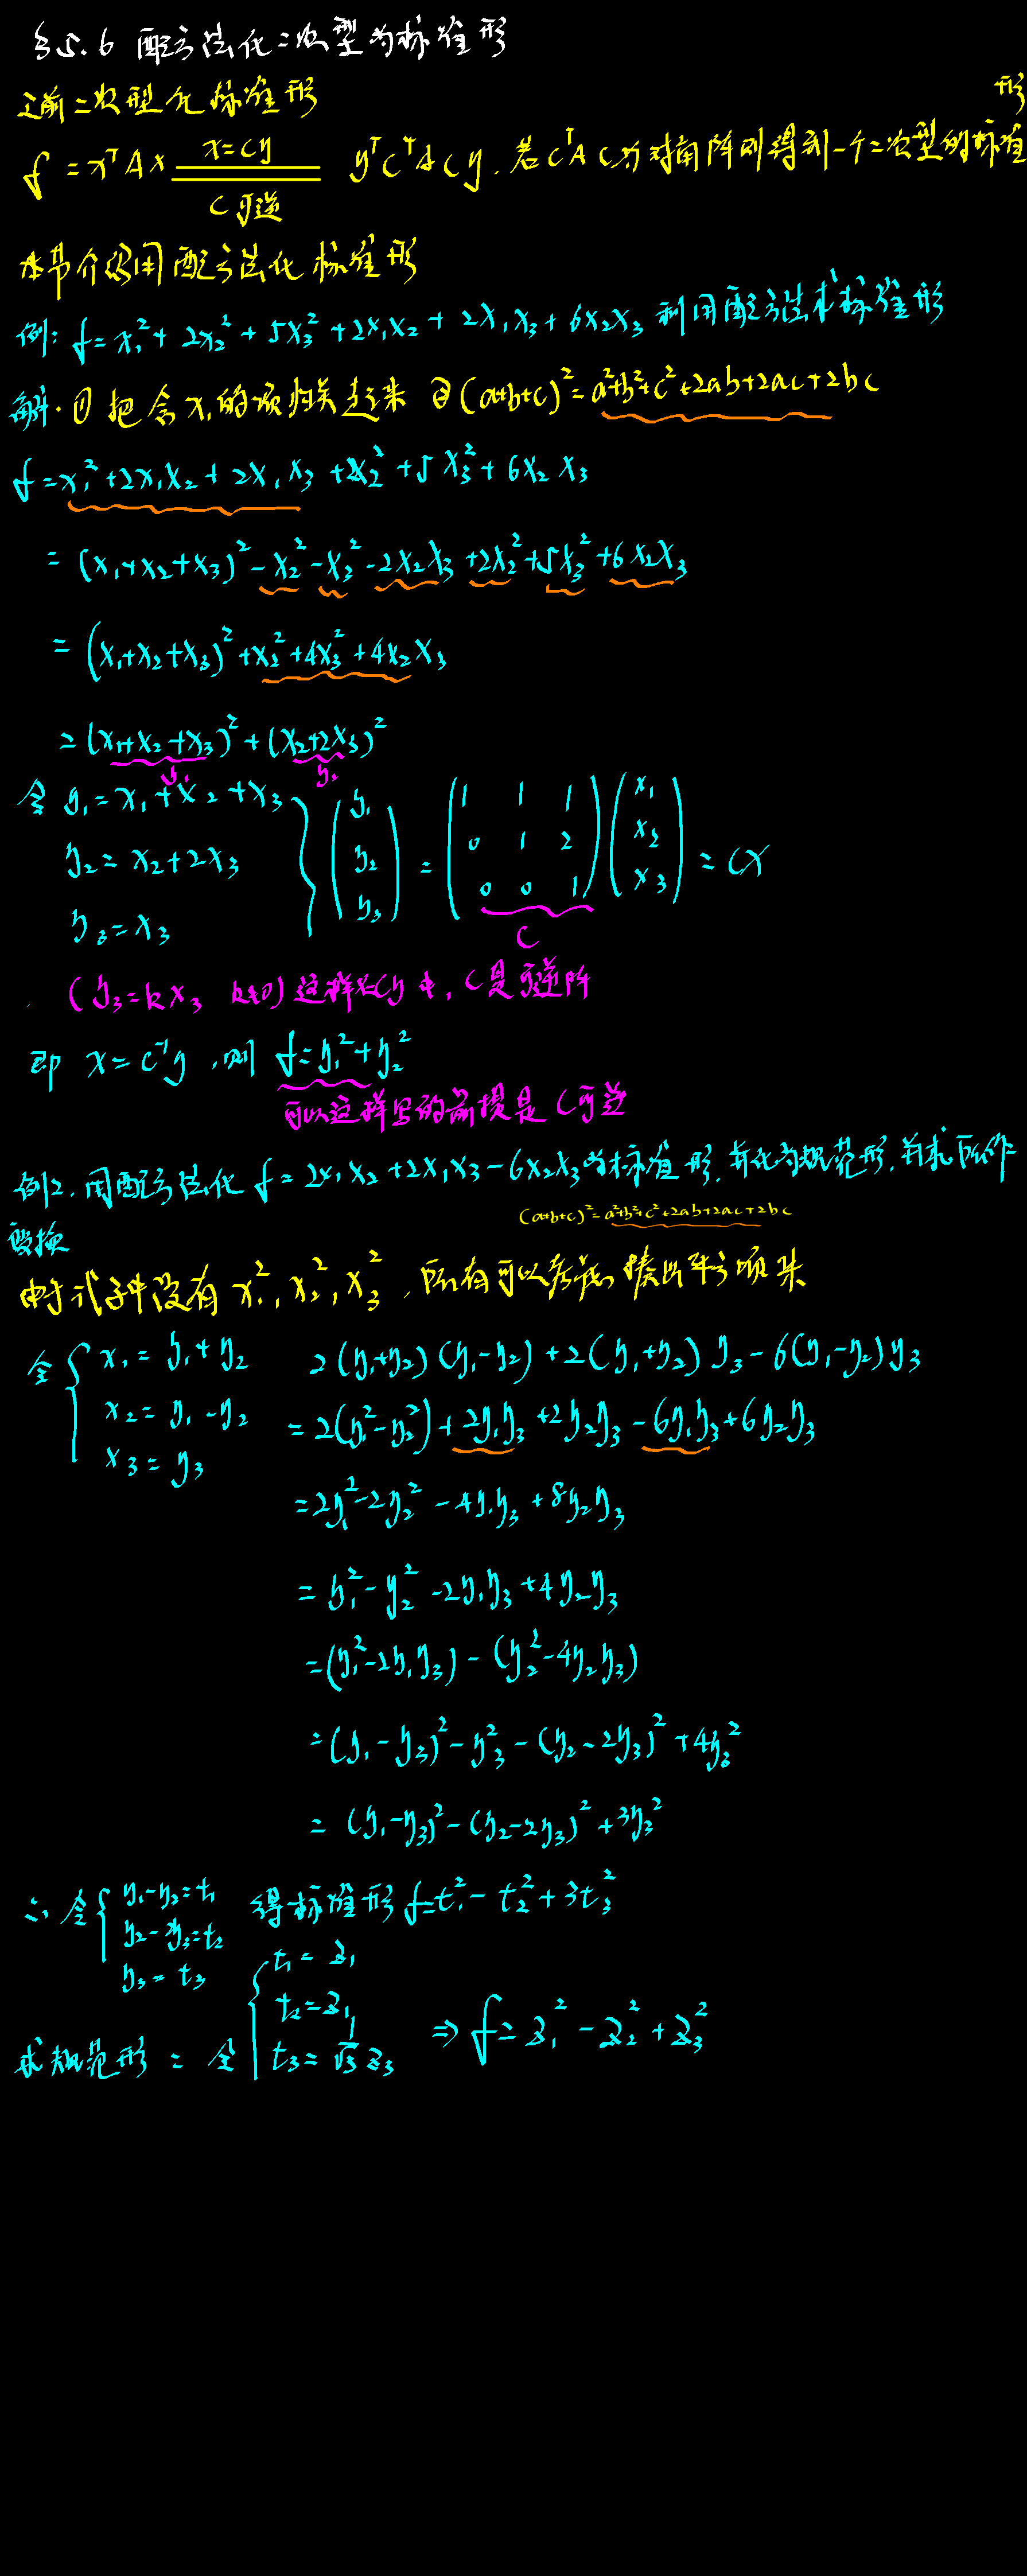 §5.6 配方法化二次型为标准形
之前二次型化标准形
f = xᵀAx ==(x=Cy, C可逆)== yᵀCᵀACy. 若CᵀAC为对角阵则得到一个二次型的标准形
本节介绍用配方法化标准形
例: f = x₁² + 2x₂² + 5x₃² + 2x₁x₂ + 2x₁x₃ + 6x₂x₃ 利用配方法求标准形
解. ① 把含x₁的项归类起来 ② (a+b+c)² = a²+b²+c²+2ab+2ac+2bc
f = x₁² + 2x₁x₂ + 2x₁x₃ + 2x₂² + 5x₃² + 6x₂x₃
= (x₁+x₂+x₃)² - x₂² - x₃² - 2x₂x₃ + 2x₂² + 5x₃² + 6x₂x₃
= (x₁+x₂+x₃)² + x₂² + 4x₃² + 4x₂x₃
= (x₁+x₂+x₃)² + (x₂+2x₃)²
y₁ y₂
令 y₁ = x₁ + x₂ + x₃
y₂ = x₂ + 2x₃
y₃ = x₃
} (y₁ y₂ y₃) = (1 1 1; 0 1 2; 0 0 1) (x₁ x₂ x₃) = Cx
C
(y₃ = kx₃ k≠0) 这样x=Cy中, C是可逆阵
即 x = C⁻¹y, 则 f = y₁² + y₂²
可以这样写的前提是C可逆
例2. 用配方法化 f = 2x₁x₂ + 2x₁x₃ - 6x₂x₃ 为标准形, 并化为规范形, 并求所作
变换
(a+b+c)² = a²+b²+c²+2ab+2ac+2bc
由于式子中没有 x₁², x₂², x₃², 所有可以考虑凑出平方项来
令 { x₁ = y₁ + y₂
x₂ = y₁ - y₂
x₃ = y₃
2(y₁+y₂)(y₁-y₂) + 2(y₁+y₂)y₃ - 6(y₁-y₂)y₃
= 2(y₁²-y₂²) + 2y₁y₃ + 2y₂y₃ - 6y₁y₃ + 6y₂y₃
= 2y₁² - 2y₂² - 4y₁y₃ + 8y₂y₃
= y₁² - y₂² - 2y₁y₃ + 4y₂y₃
= (y₁² - 2y₁y₃) - (y₂² - 4y₂y₃)
= (y₁-y₃)² - y₃² - (y₂-2y₃)² + 4y₃²
= (y₁-y₃)² - (y₂-2y₃)² + 3y₃²
∴ 令 { y₁-y₃ = t₁
y₂-2y₃ = t₂
y₃ = t₃
得标准形 f = t₁² - t₂² + 3t₃²
求规范形: 令 { t₁ = z₁
t₂ = z₁
t₃ = √3 z₃
⇒ f = z₁² - z₂² + z₃²